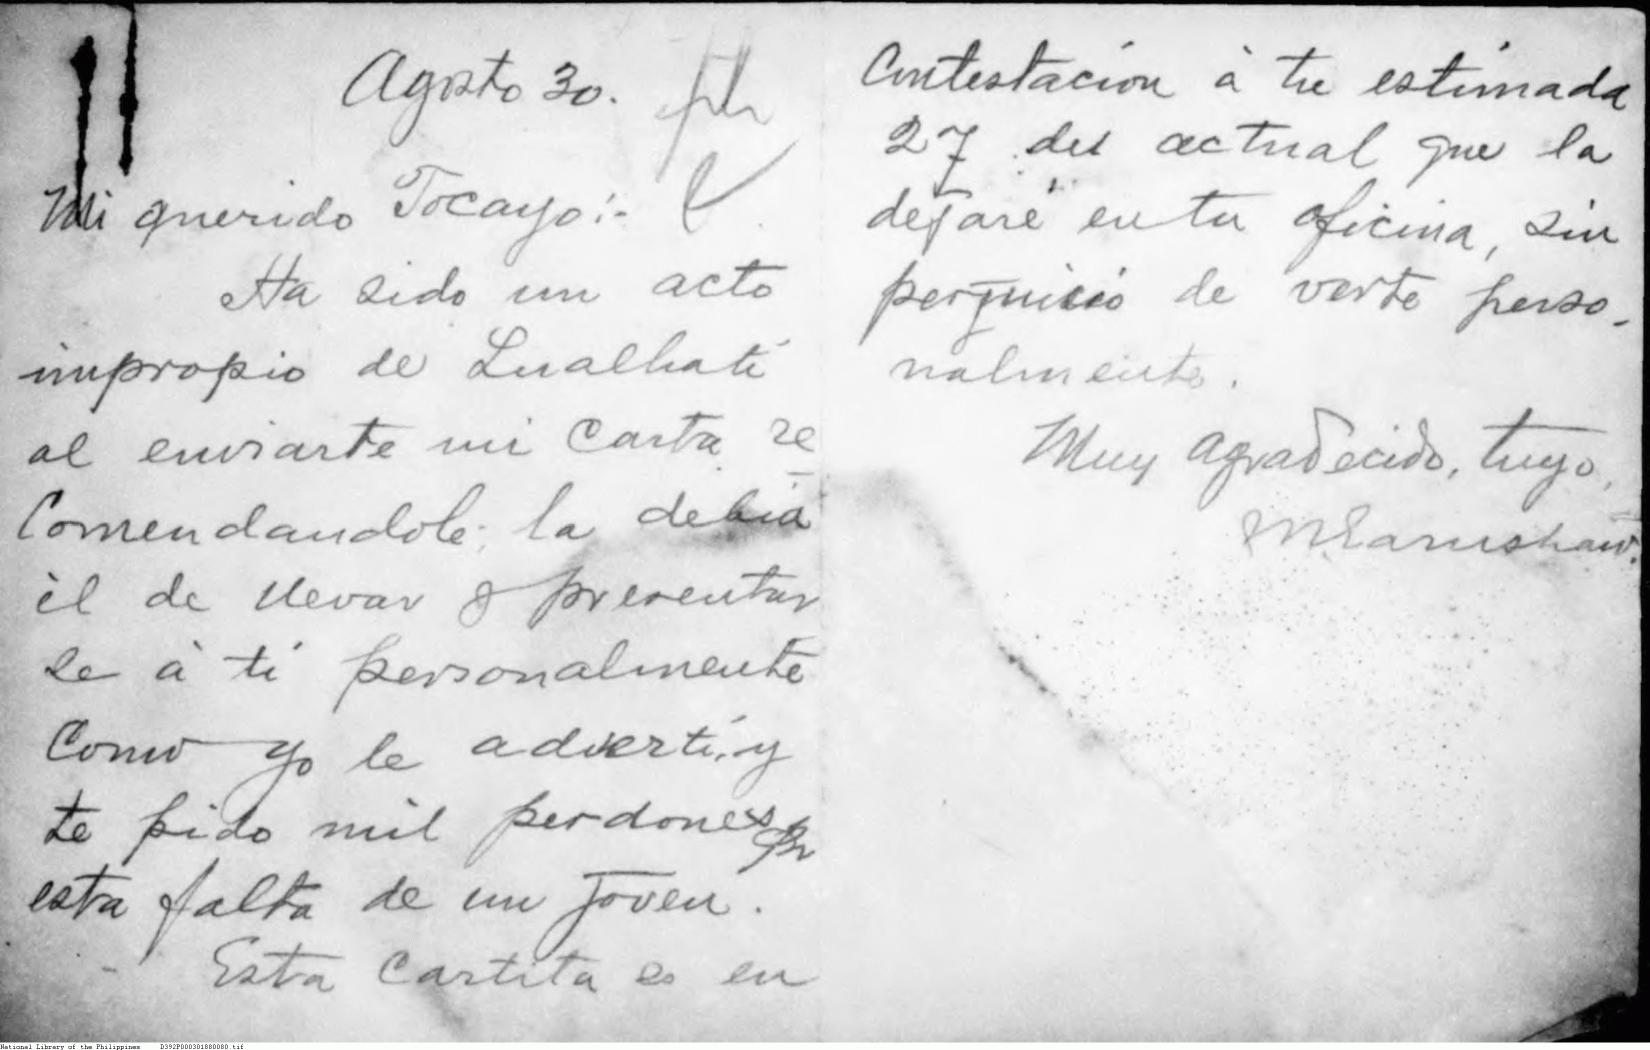 Agosto 30.
Mi querido Tocayo:-
Ha sido un acto
impropio de Lualhati
al enviarte mi carta re
comendandole; la debia
èl de llevar y presentar
se à ti personalmente
como yo le adverti, y
te pido mil perdones pr
esta falta de un joven.
Esta cartita es en
contestación à tu estimada
27 del actual que la
dejaré en tu oficina, sin
perjuicio de verte perso-
nalmente.
Muy agradecido, tuyo,
M. Earnshaw.
National Library of the Philippines D392P000301880080.tif